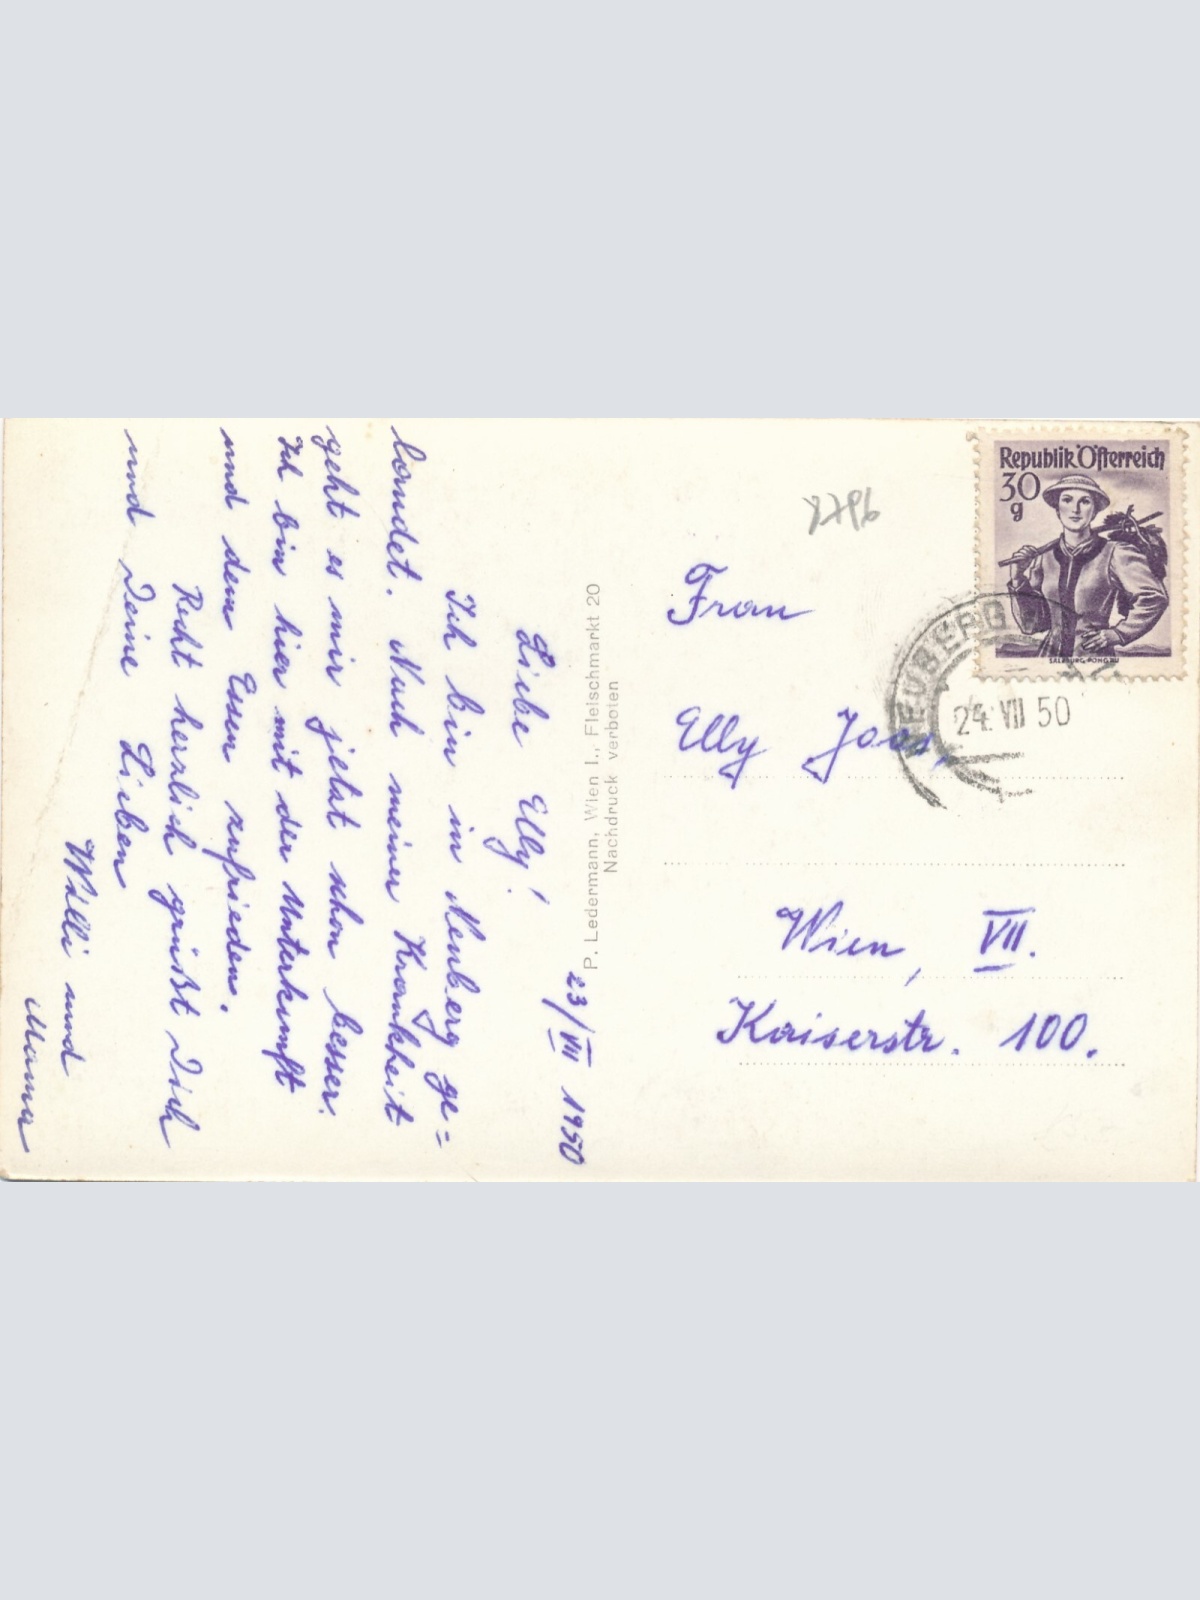 23/VII 1950
Liebe Elly!
Ich bin in Neuberg ge=
landet. Nach meiner Krankheit
geht es mir jetzt schon besser.
Ich bin hier mit der Unterkunft
und dem Essen zufrieden.
Recht herzlich grüßt Dich
und Deine Lieben
Willi und
Mama
P. Ledermann, Wien I., Fleischmarkt 20
Nachdruck verboten
8796
Republik Österreich
30
g
SALZBURG, PONGAU
NEUBERG
24. VII 50
Frau
Elly Joos,
Wien, VII.
Kaiserstr. 100.